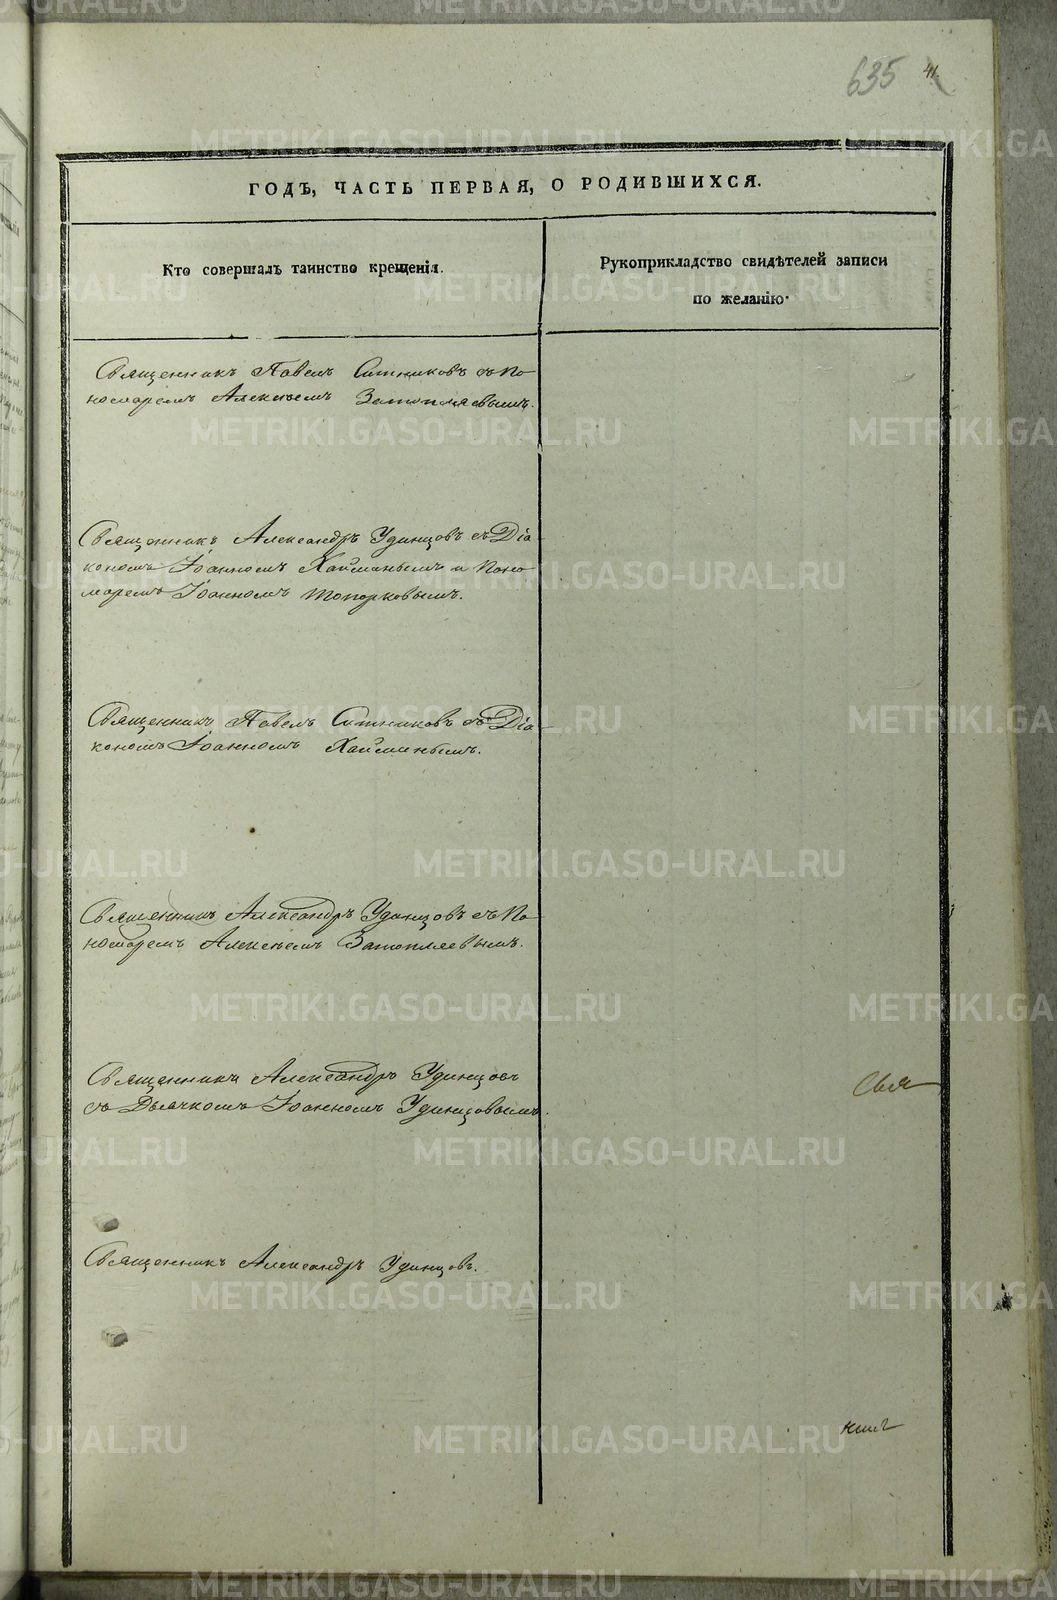 635 41
ГОДЪ, ЧАСТЬ ПЕРВАЯ, О РОДИВШИХСЯ.
Кто совершалъ таинство крещенія.
Рукоприкладство свидѣтелей записи
по желанію.
Священникъ Павелъ Ситниковъ съ По
номаремъ Алексѣемъ Затопляевымъ.
Священникъ Александръ Удинцовъ съ Діа
кономъ Іоанномъ Хайминымъ и Поно
маремъ Іоанномъ Топорковымъ.
Священникъ Павелъ Ситниковъ съ Діа
кономъ Іоанномъ Хайминымъ.
Священникъ Александръ Удинцовъ съ По
номаремъ Алексѣемъ Затопляевымъ.
Священникъ Александръ Удинцовъ
съ Дьячкомъ Іоанномъ Удинцовымъ.
Священникъ Александръ Удинцовъ.
METRIKI.GASO-URAL.RU